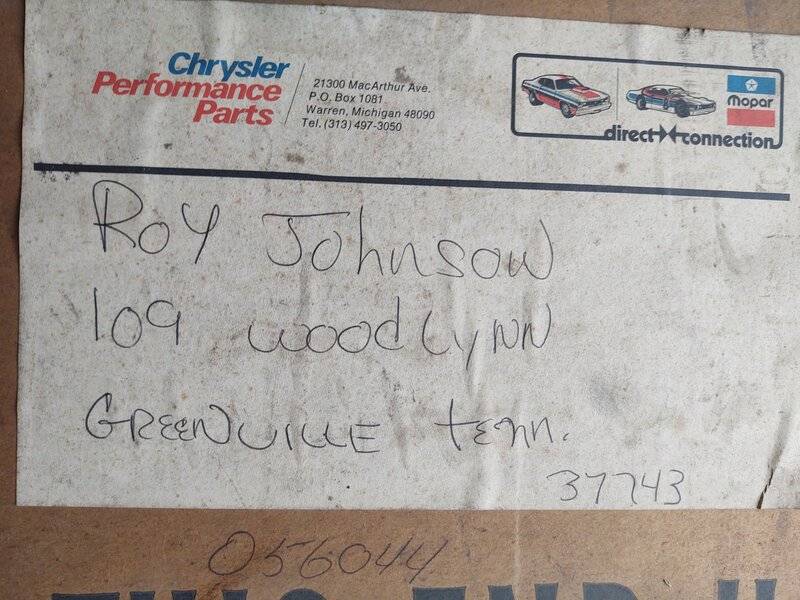 Chrysler
Performance
Parts
21300 MacArthur Ave.
P.O. Box 1081
Warren, Michigan 48090
Tel. (313) 497-3050
mopar
direct connection
Roy Johnson
109 WoodLynn
GREENVILLE tenn.
37743
056044
THIS END U